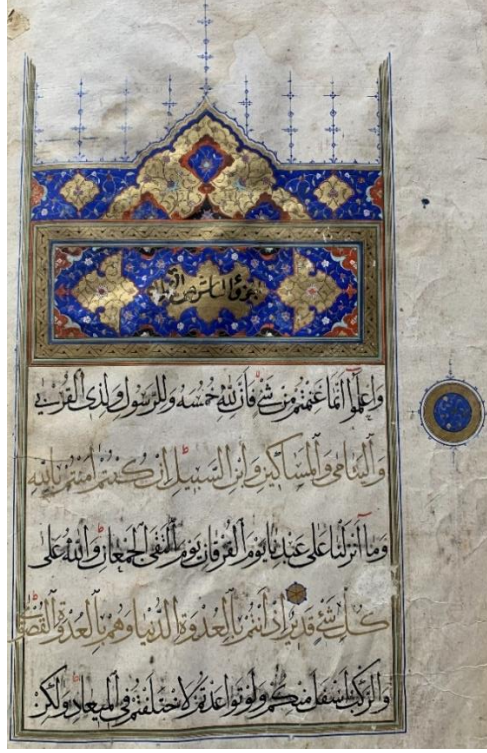 وَاعْلَمُوا أَنَّمَا غَنِمْتُمْ مِنْ شَيْءٍ فَأَنَّ لِلَّهِ خُمُسَهُ وَلِلرَّسُولِ وَلِذِي الْقُرْبَى
وَالْيَتَامَى وَالْمَسَاكِينِ وَابْنِ السَّبِيلِ إِنْ كُنْتُمْ آمَنْتُمْ بِاللَّهِ
وَمَا أَنْزَلْنَا عَلَى عَبْدِنَا يَوْمَ الْفُرْقَانِ يَوْمَ الْتَقَى الْجَمْعَانِ وَاللَّهُ عَلَى
كُلِّ شَيْءٍ قَدِيرٌ إِذْ أَنْتُمْ بِالْعُدْوَةِ الدُّنْيَا وَهُمْ بِالْعُدْوَةِ الْقُصْوَى
وَالرَّكْبُ أَسْفَلَ مِنْكُمْ وَلَوْ تَوَاعَدْتُمْ لَاخْتَلَفْتُمْ فِي الْمِيعَادِ وَلَكِنْ